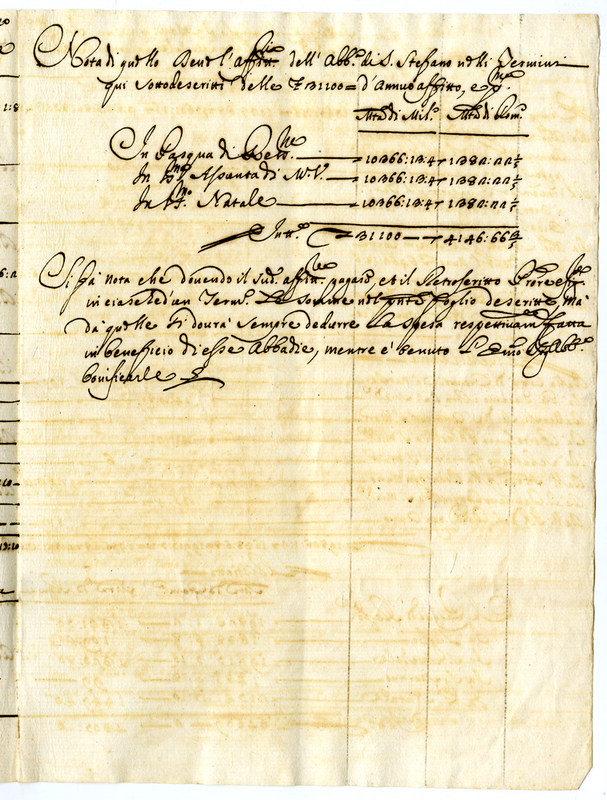 Nota di quello Deve l'affitt.rio dell'Abb.a di S. Stefano nelli Termini
qui sottodescritti delle £ 31100 = d'Annuo affitto, e p.mo
Mta di Mil.o Mta di Rom.
In Pasqua di = 10366:13:4 7 1382:22
In Assunta di M.V. = 10366:13:4 7 1382:22
In Natale = 10366:13:4 7 1382:22
In tt.o = 31100 — 7 4146:66
Si fà nota che dovendo il sud.o affitt.re pagare, et il Retroscritto
in ciasched'un Term.e Le somme nel foglio descritte, mà
dà quelle si dovrà sempre dedurre La spesa respettivam.te fatta
in beneficio di esse Abbadie, mentre è tenuto L'Em.o Abb.e
bonificarle